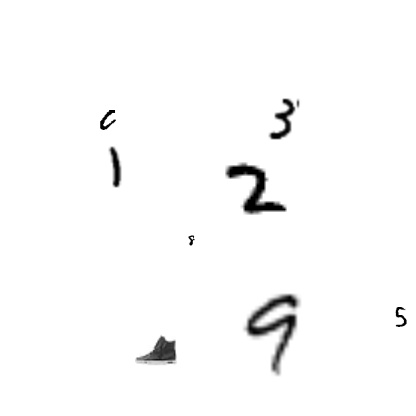 3
1 2
8
9 5